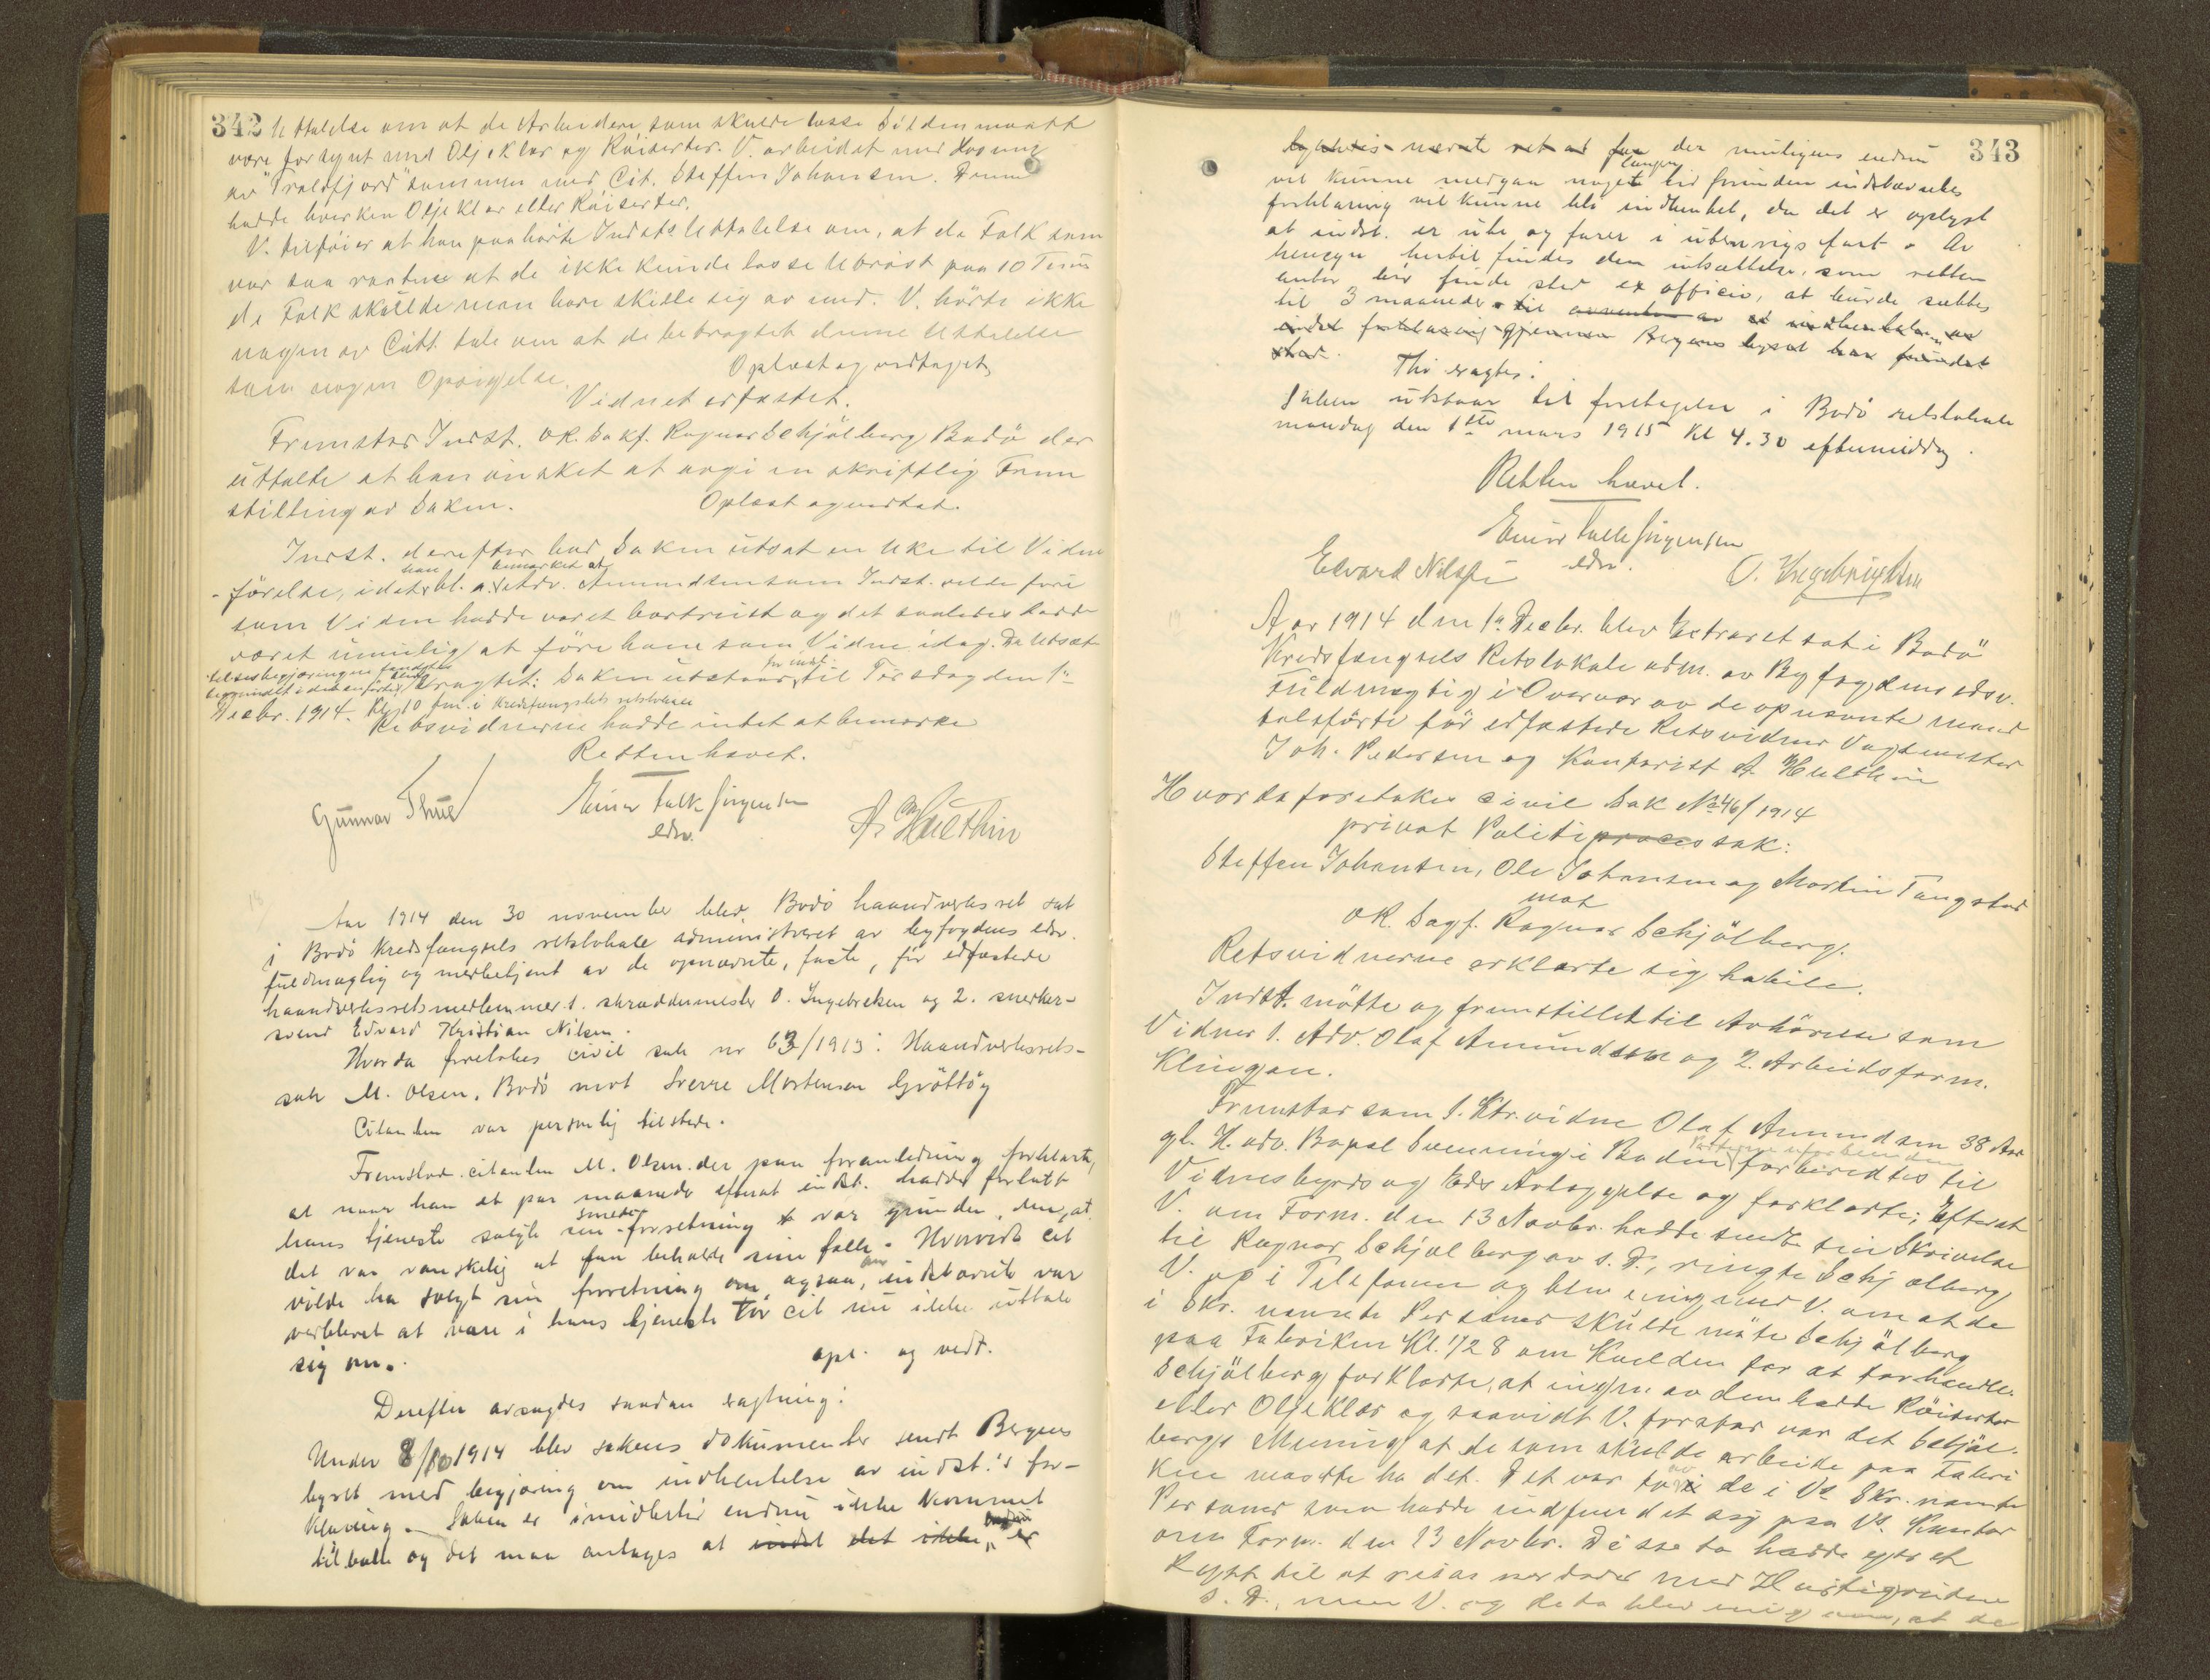 342 Uttalelse om at de Arbeidere som skulde losse Silden maatte
være forsynt med Oljeklær og Röiserter. V. arbeidet med Losning
av "Traldfjord" sammen med Cit. Steffen Johansen. Denne
hadde hverken Oljeklær eller Röiserter.
V. tilföier at han paahörte Indsts Uttalelse om, at de Folk som
var saa at de ikke kunde losse Ubröst paa 10 Timer
de Folk skulde man bare skille sig av med. V. hörte ikke
nogen av Citt. tale om at de betragtet denne Uttalelse
som nogen Opsigelse. Oplæst og vedtaget
Vidnet edfæstet.
Fremstar Indst. OR. Sakf. Ragnar Schjölberg Bodö der
uttalte at han önsket at avgi en skriftlig Frem
stilling av Saken. Oplæst og vedtat.
Indst. derefter bad Saken utsat en Uke til Vidne
-förelse, idet han bl. a. bemærket at Adv. Amundsen som Indst. vilde före
som Viden hadde været bortreist og det saaledes hadde
været umulig at före ham som Vidne idag. Da Utsæt
telsesbegjæringen fandtes
begrundet i det anförte, blev eragtet: Saken utstaar for ind til Tirsdag den 1ste
Decbr. 1914. Kl. 10 fm. i Kredsfængslets retslokale
Retsvidnerne hadde intet at bemærke
Retten hævet.
Gunnar Thue Einar Falk Jörgensen A. Hulthin
edsv.
Aar 1914 den 30 november blev Bodö haandverksret sat
i Bodö Kredsfængsels retslokale administreret av byfogdens edsv.
fuldmægtig og medbetjent av de opnævnte, faste, för edfæstede
haandverksretsmedlemmer 1. skræddermester O. Ingebretsen og 2. snedker-
svend Edvard Kristian Nilsen.
Hvorda foretokes civil sak nr 63/1913: Haandverksrets-
sak M. Olsen, Bodö mot Sverre Mortensen Gröttöy
Citanten var personlig tilstede.
Fremstod citanten M. Olsen der paa foranledning forklarte,
at naar han et par maaneder efterat indst. hadde forlatt
hans tjeneste solgte sin smedeforretning var grunden den, at
det var vanskelig at faa beholde sine folk. Hvorvidt cit
vilde ha solgt sin forretning om ogsaa indstævnte var
verbleret at være i hans tjeneste tör cit nu ikke uttale
sig om. opl. og vedt.
Derefter avsagdes saadan eragtning:
Under 8/10 1914 blev sakens dokumenter sendt Bergens
byret med begjæring om indhentelse av indst.'s for-
klaring. Saken er imidlertid endnu ikke kommet
tilbake og det maa antages at indst det ikke endnu er

343
nærete ret at faa der muligens endnu
vil kunne medgaa noget længere tid forinden indstævntes
forklaring vil kunne bli indhentet, da det er oplyst
at indst. er ute og farer i utenrigs fart. Av
hensyn hertil findes den utsættelse, som retten
antar bör finde sted ex officio, at burde sættes
til 3 maaneder. til av at indhentelse av
indst forklaring gjennem Bergens byret har fundet
sted.
Thi eragtes:
Saken utstaar til foretagelse i Bodö retslokale
mandag den 1ste mars 1915 kl 4.30 eftermiddag.
Retten hævet.
Einar Falk Jörgensen
edsv.
Edvard Nilsen O. Ingebrigtsen
Aar 1914 den 1ste Decbr. blev Extraret sat i Bodö
Kredsfængsels Retslokale adm. av Byfogdens edsv.
Fuldmægtig i Overvær av de opnævnte mand
talsförte för edfæstede Retsvidner Vagtmester
Joh. Pedersen og Kontorist A. Hulthin
Hvorda foretokes civil Sak No 46/1914
privat Politiproces sak:
Steffen Johansen, Ole Johansen og Martin Tangstad
mot
OR. Sagf. Ragnar Schjölberg.
Retsvidnerne erklærte sig habile.
Indst. mötte og fremstillet til Avhörelse som
Vidner 1. Adv. Olaf Amundsen og 2. Arbeidsform.
Klingan.
Fremstar som 1. Ktr.vidne Olaf Amundsen 38 Aar
gl. H. adv. Bopæl Svenning i Bodin forberedtes til
Vidnesbyrds og Eds Avlæggelse og forklarte: Efterat
V. om Form. den 13 Novbr. hadde sendt sin Skrivelse
til Ragnar Schjölberg av s. D., ringte Schjölberg
V. op i Telefonen og blev enig med V. om at de
i Skr. nævnte Personer skulde möte Schjölberg
paa Fabriken Kl. 1/2 8 om Kvelden for at forhandle.
Schjölberg forklarte, at ingen av dem hadde Röiserter
eller Oljeklær og saavidt V. forstar var det Schjöl-
bergs Mening at de som skulde arbeide paa Fabri
ken maatte ha det. Det var to av de i Vs Skr. nævnte
Personer som hadde indfundet sig paa Vs. Kontor
om Form. den 13 Novbr. Disse to hadde ytret
Lyst til at reise nordover med Hurtigruten
s. D., men V. og de to blev enig om, at de